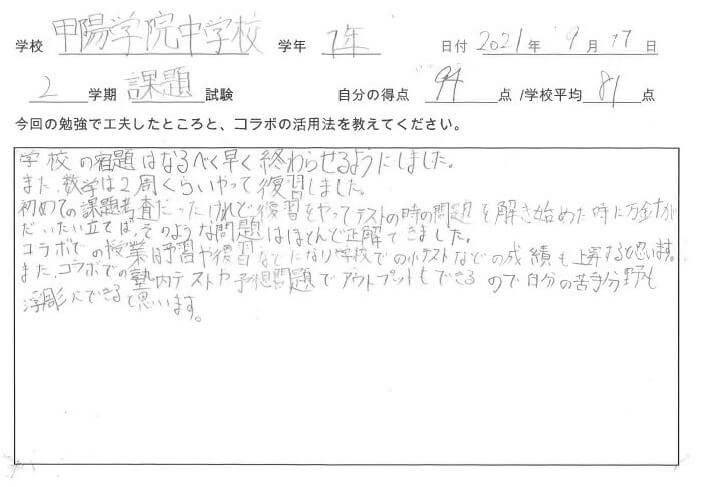 学校 甲陽学院中学校 学年 1年 日付 2021年 9月 17日
2 学期 課題 試験 自分の得点 94 点 /学校平均 81 点
今回の勉強で工夫したところと、コラボの活用法を教えてください。
学校の宿題はなるべく早く終わらせるようにしました。
また、数学は2周くらいやって復習しました。
初めての課題考査だったけれど復習をやってテストの時の問題を解き始めた時に方針が
だいたい立てば、そのような問題はほとんど正解できました。
コラボでの授業は予習や復習などになり学校での小テストなどの成績も上昇すると思います。
また、コラボでの塾内テストや予想問題でアウトプットもできるので自分の苦手分野も
浮彫にできると思います。